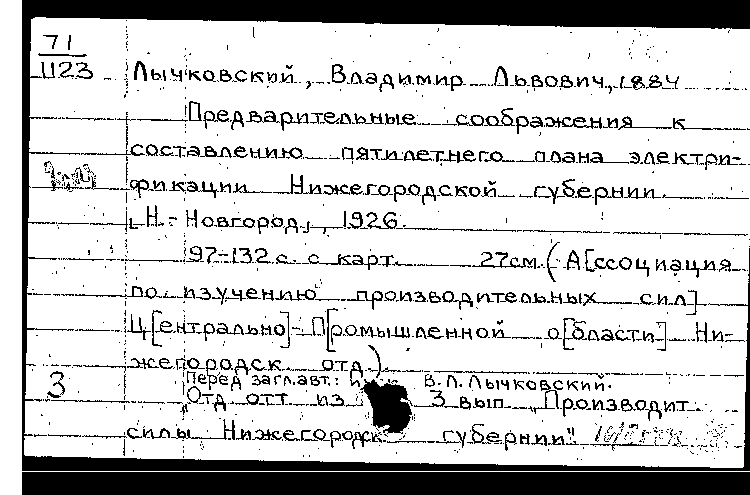 71
1123 Лычковский, Владимир Львович, 1884
Предварительные соображения к
составлению пятилетнего плана электри-
фикации Нижегородской губернии.
[Н.-Новгород], 1926.
97-132 с. с карт. 27см. (А[ссоциация
по изучению производительных сил]
Ц[ентрально]-П[ромышленной о[бласти] Ни-
жегородск. отд.)
Перед загл. авт.: В.Л.Лычковский.
3 „Отд. отт. из 3 вып. „Производит.
силы Нижегородск губернии"